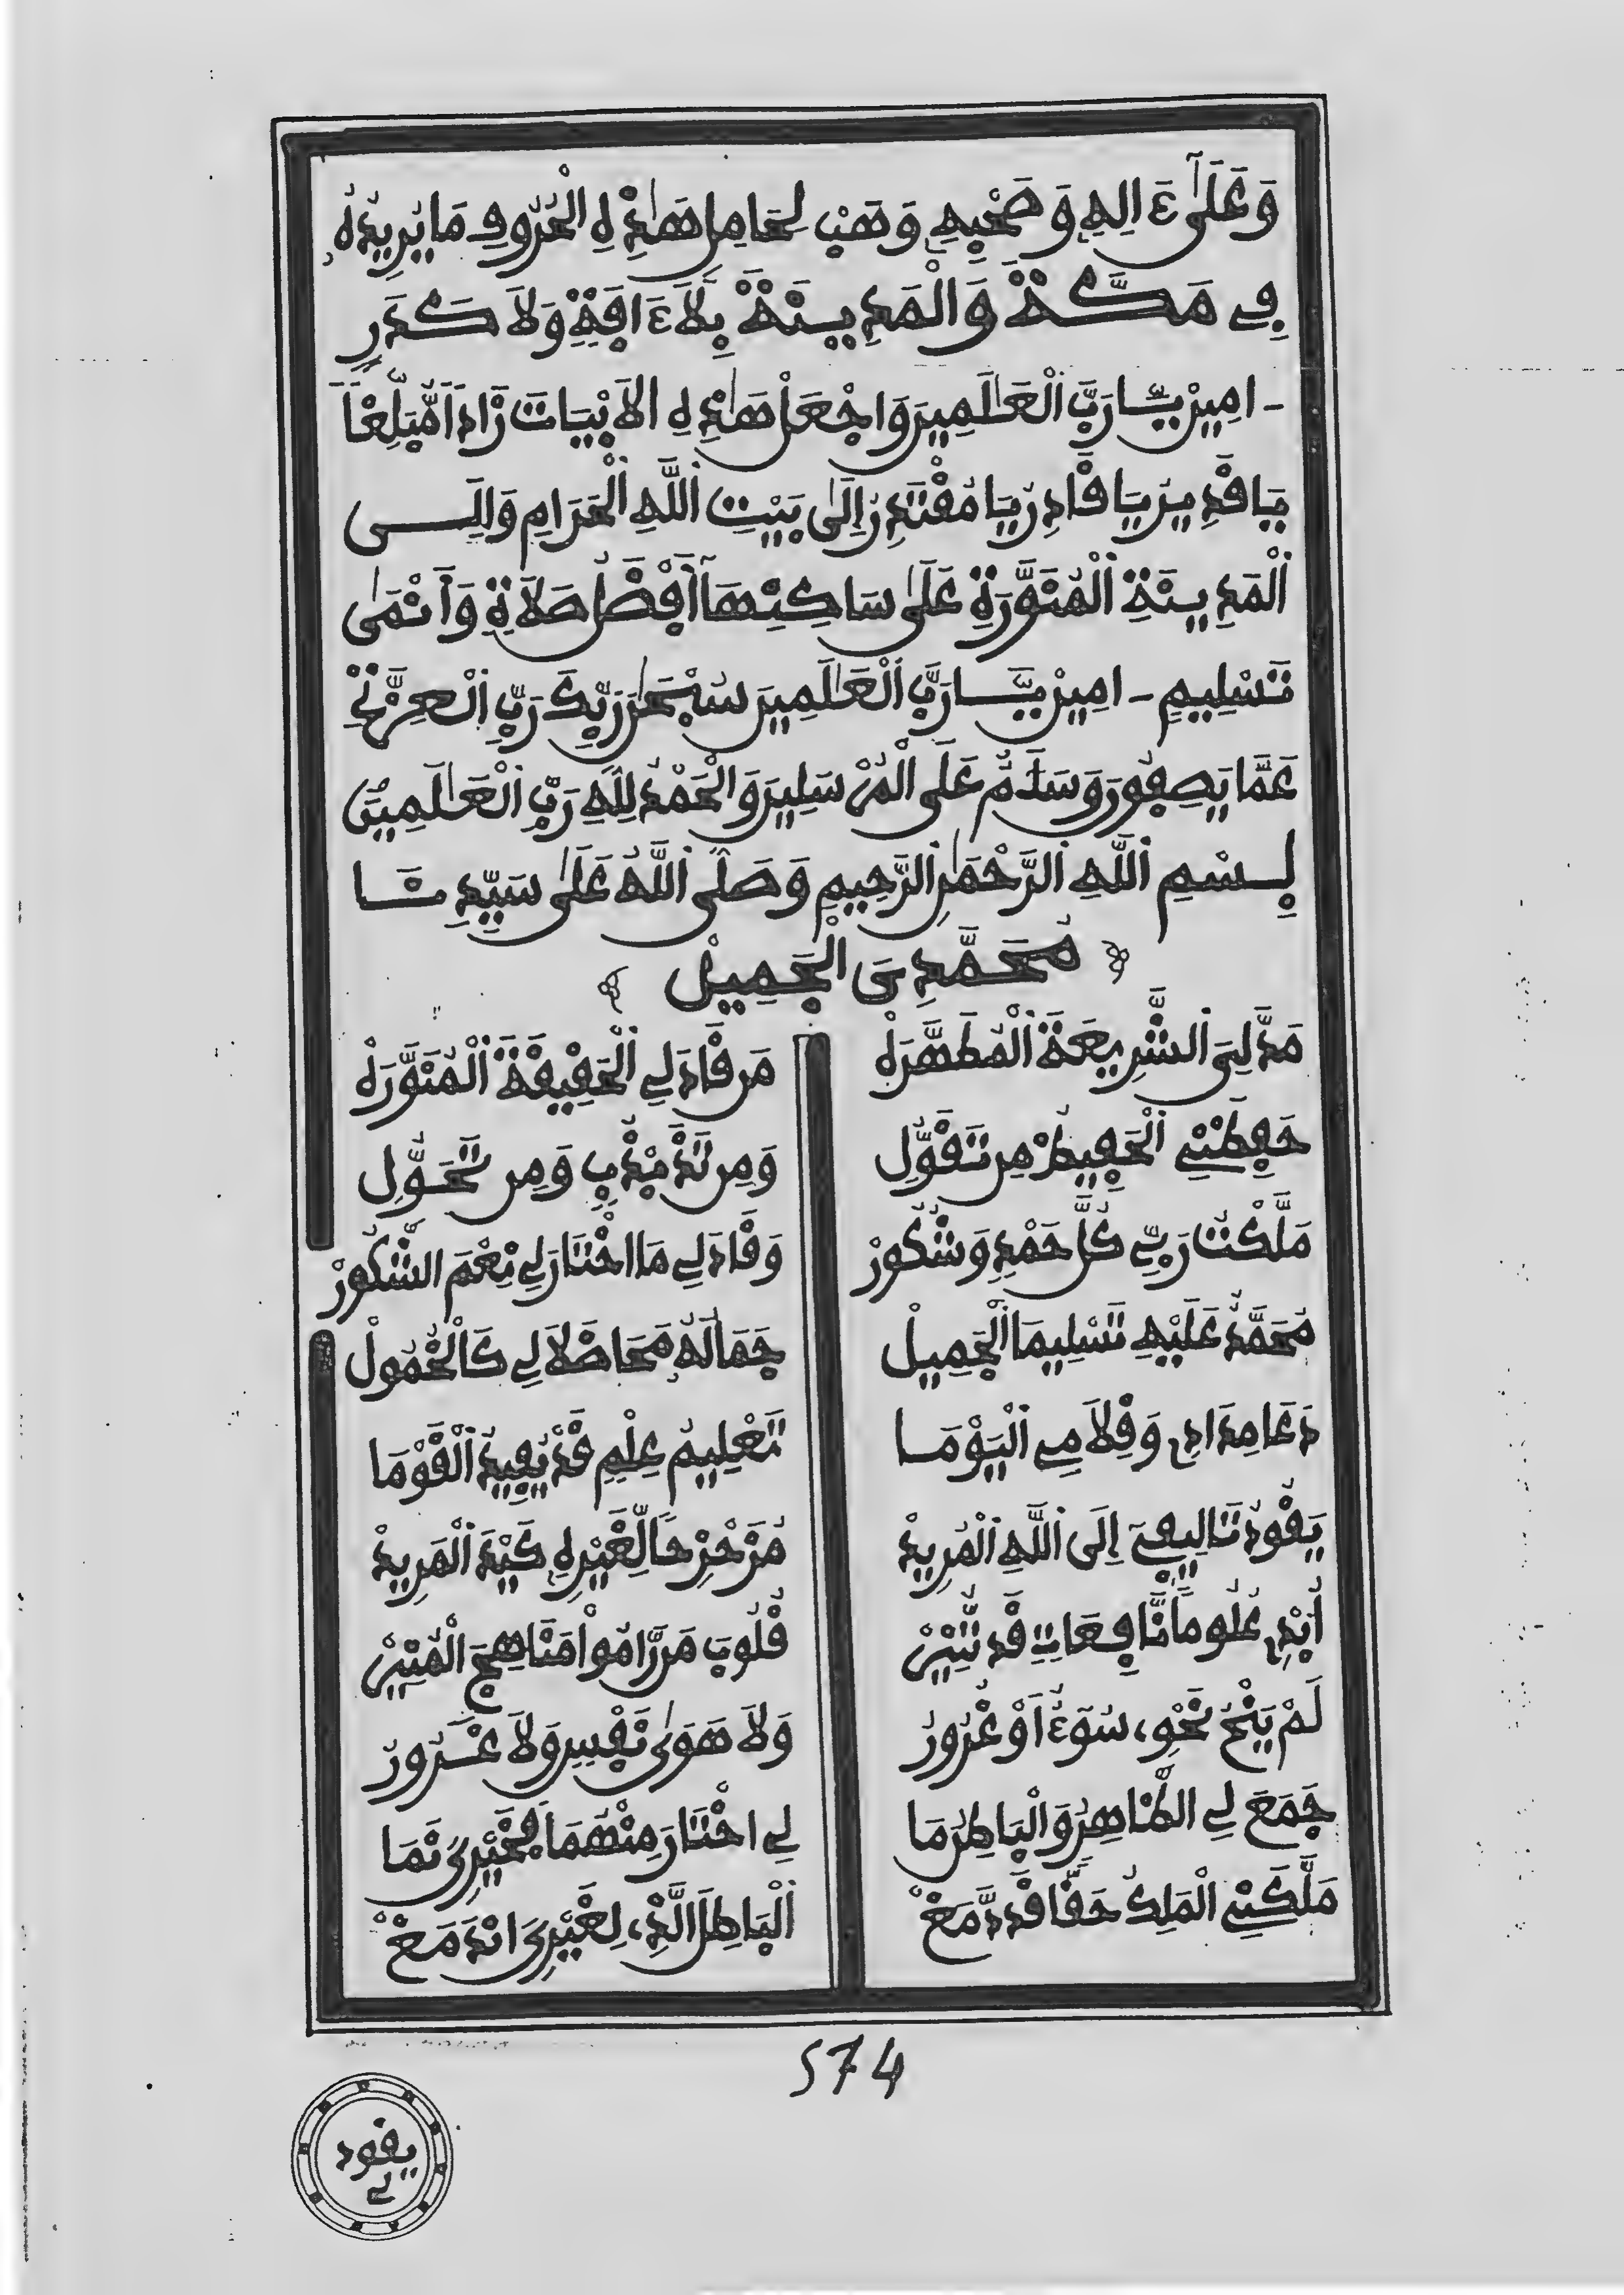 وَعَلَىٰٓ ءَالِهِ وَصَحْبِهِ وَهَبْ لِحَامِلِ هَٰذِهِ الْحُرُوفِ مَا يُرِيدُهُ
فِي مَكَّةَ وَالْمَدِينَةِ بِلَا ءَافَةٍ وَلَا كَدَرٍ
ـامِينْ يَا رَبَّ الْعَٰلَمِينَ وَاجْعَلْ هَٰذِهِ الْأَبْيَاتَ زَادًا مُّبَلِّغًا
يَا قَدِيرُ يَا قَادِرُ يَا مُقْتَدِرُ إِلَىٰ بَيْتِ اللَّهِ الْحَرَامِ وَإِلَى
الْمَدِينَةِ الْمُنَوَّرَةِ عَلَىٰ سَاكِنِهَا أَفْضَلُ صَلَاةٍ وَأَنْمَىٰ
تَسْلِيمٍ ـ امِينْ يَا رَبَّ الْعَٰلَمِينَ سُبْحَٰنَ رَبِّكَ رَبِّ الْعِزَّةِ
عَمَّا يَصِفُونَ وَسَلَٰمٌ عَلَى الْمُرْسَلِينَ وَالْحَمْدُ لِلَّهِ رَبِّ الْعَٰلَمِينَ
بِسْمِ اللَّهِ الرَّحْمَٰنِ الرَّحِيمِ وَصَلَّى اللَّهُ عَلَىٰ سَيِّدِنَا
مُحَمَّدٍ ىِ الْجَمِيلْ
مَدَّ لِيَ الشَّرِيعَةَ الْمُطَهَّرَهْ مَن قَادَ لِي الْحَقِيقَةَ الْمُنَوَّرَهْ
حَفِظَنِي الْحَفِيظُ مِن تَقَوُّلِ وَمِن تَذَبْذُبٍ وَمِن تَحَوُّلِ
مَلَّكْتُ رَبِّي كُلَّ حَمْدٍ وَشُكُورْ وَقَادَ لِي مَا اخْتَارَ لِي نِعْمَ الشَّكُورْ
مُحَمَّدٌ عَلَيْهِ تَسْلِيمَا الْجَمِيلْ جَمَالُهُ مَحَا ضَلَالِي كَالْخُمُولْ
دَعَا مِدَادِي وَقِلَامِي الْيَوْمَا تَعْلِيمُ عِلْمٍ قَدْ يُفِيدُ الْقَوْمَا
يَقُودُ تَالِيفِيَ إِلَى اللَّهِ الْمُرِيدْ مُزَحْزِحًا لِّغَيْرِهِ كَيْدَ الْمَرِيدْ
أُبْدِي عُلُومًا نَّافِعَاتٍ قَدْ تُنِيرْ قُلُوبَ مَن رَّامُوا مَنَاهِجَ الْمُنِيرْ
لَمْ يَنْحُ نَحْوِي سُوٓءٌ أَوْ غُرُورُ وَلَا هَوَىٰ نَفْسٍ وَلَا غَرُورُ
جَمَعَ لِي الظَّاهِرُ وَالْبَاطِنُ مَا لِي اخْتَارَ مِنْهُمَا فَخَيْرِيَ نَمَا
مَلَّكَنِي الْمَلِكُ حَقًّا قَدْ دَمَغْ الْبَاطِلَ الَّذِي لِغَيْرِيَ انْدَمَغْ
574
يقود
لي